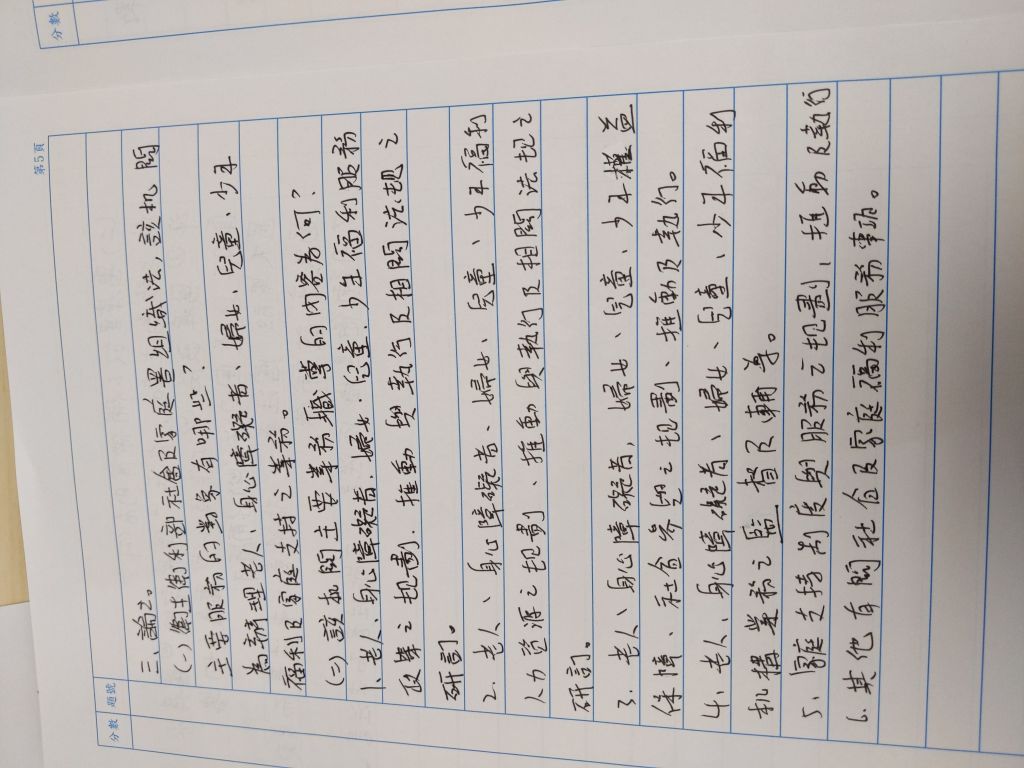 第5頁
分數
題號
三、論之。
(一)衛生衛利部社會及家庭署組織法,該机関
主要服務的對象有哪些?
為辦理老人、身心障礙者、婦女、兒童、少年
福利及家庭支持之業務。
(二)該机関主要業務職掌的內容為何?
1、老人、身心障礙者、婦女、兒童、少年福利服務
政策之規劃、推動與執行及相関法規之
研訂。
2、老人、身心障礙者、婦女、兒童、少年福利
人力資源之規劃、推動與執行及相関法規之
研訂。
3、老人、身心障礙者、婦女、兒童、少年權益
保障、社會參與之規劃、推動及執行。
4、老人、身心障礙者、婦女、兒童、少年福利
机構業務之監督及輔導。
5、家庭支持制度與服務之規劃、推動及執行
6、其他有関社会及家庭福利服務事項。
分數